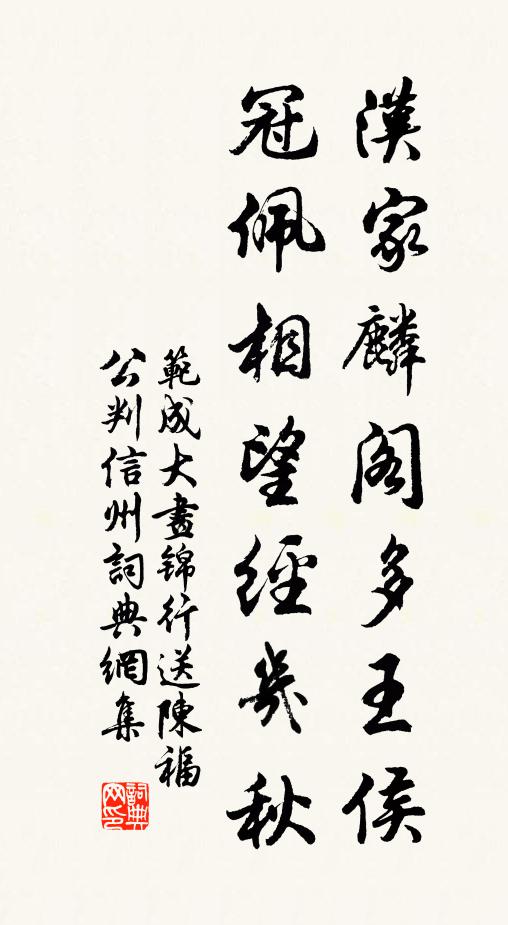 漢家麟閣多王侯
冠佩相望經幾秋
範成大晝錦行送陳福
公判信州詞典網集
詞典网印